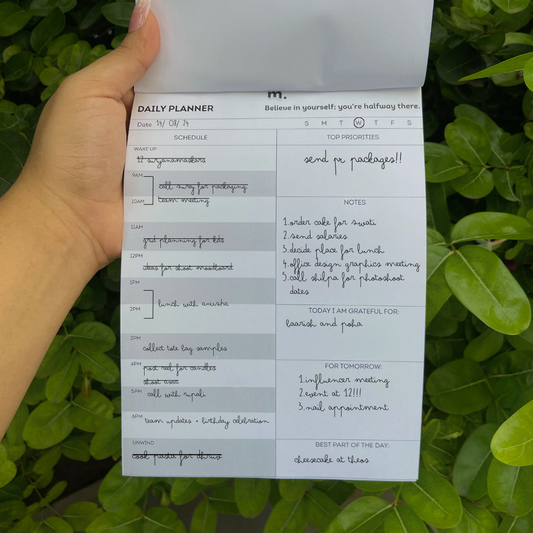 m.
DAILY PLANNER
Believe in yourself; you're halfway there.
Date 14/ 08/ 24
S M T W T F S
SCHEDULE
WAKE UP
12 suryanamaskars
9AM
call suraj for packaging
10AM
team meeting
11AM
grid planning for kds
12PM
ideas for shoot moodboard
1PM
2PM
lunch with anusha
3PM
collect tote bag samples
4PM
post reel for candles
5PM
call with rupali
6PM
team updates + birthday celebration
UNWIND
cook pasta for dhruv
TOP PRIORITIES
send pr packages!!
NOTES
1.order cake for swati
2.send salaries
3.decide place for lunch
4.office design graphics meeting
5.call shilpa for photoshoot
dates
TODAY I AM GRATEFUL FOR:
baarish and poha
FOR TOMORROW:
1.influencer meeting
2.event at 12!!!
3.nail appointment
BEST PART OF THE DAY:
cheesecake at theos